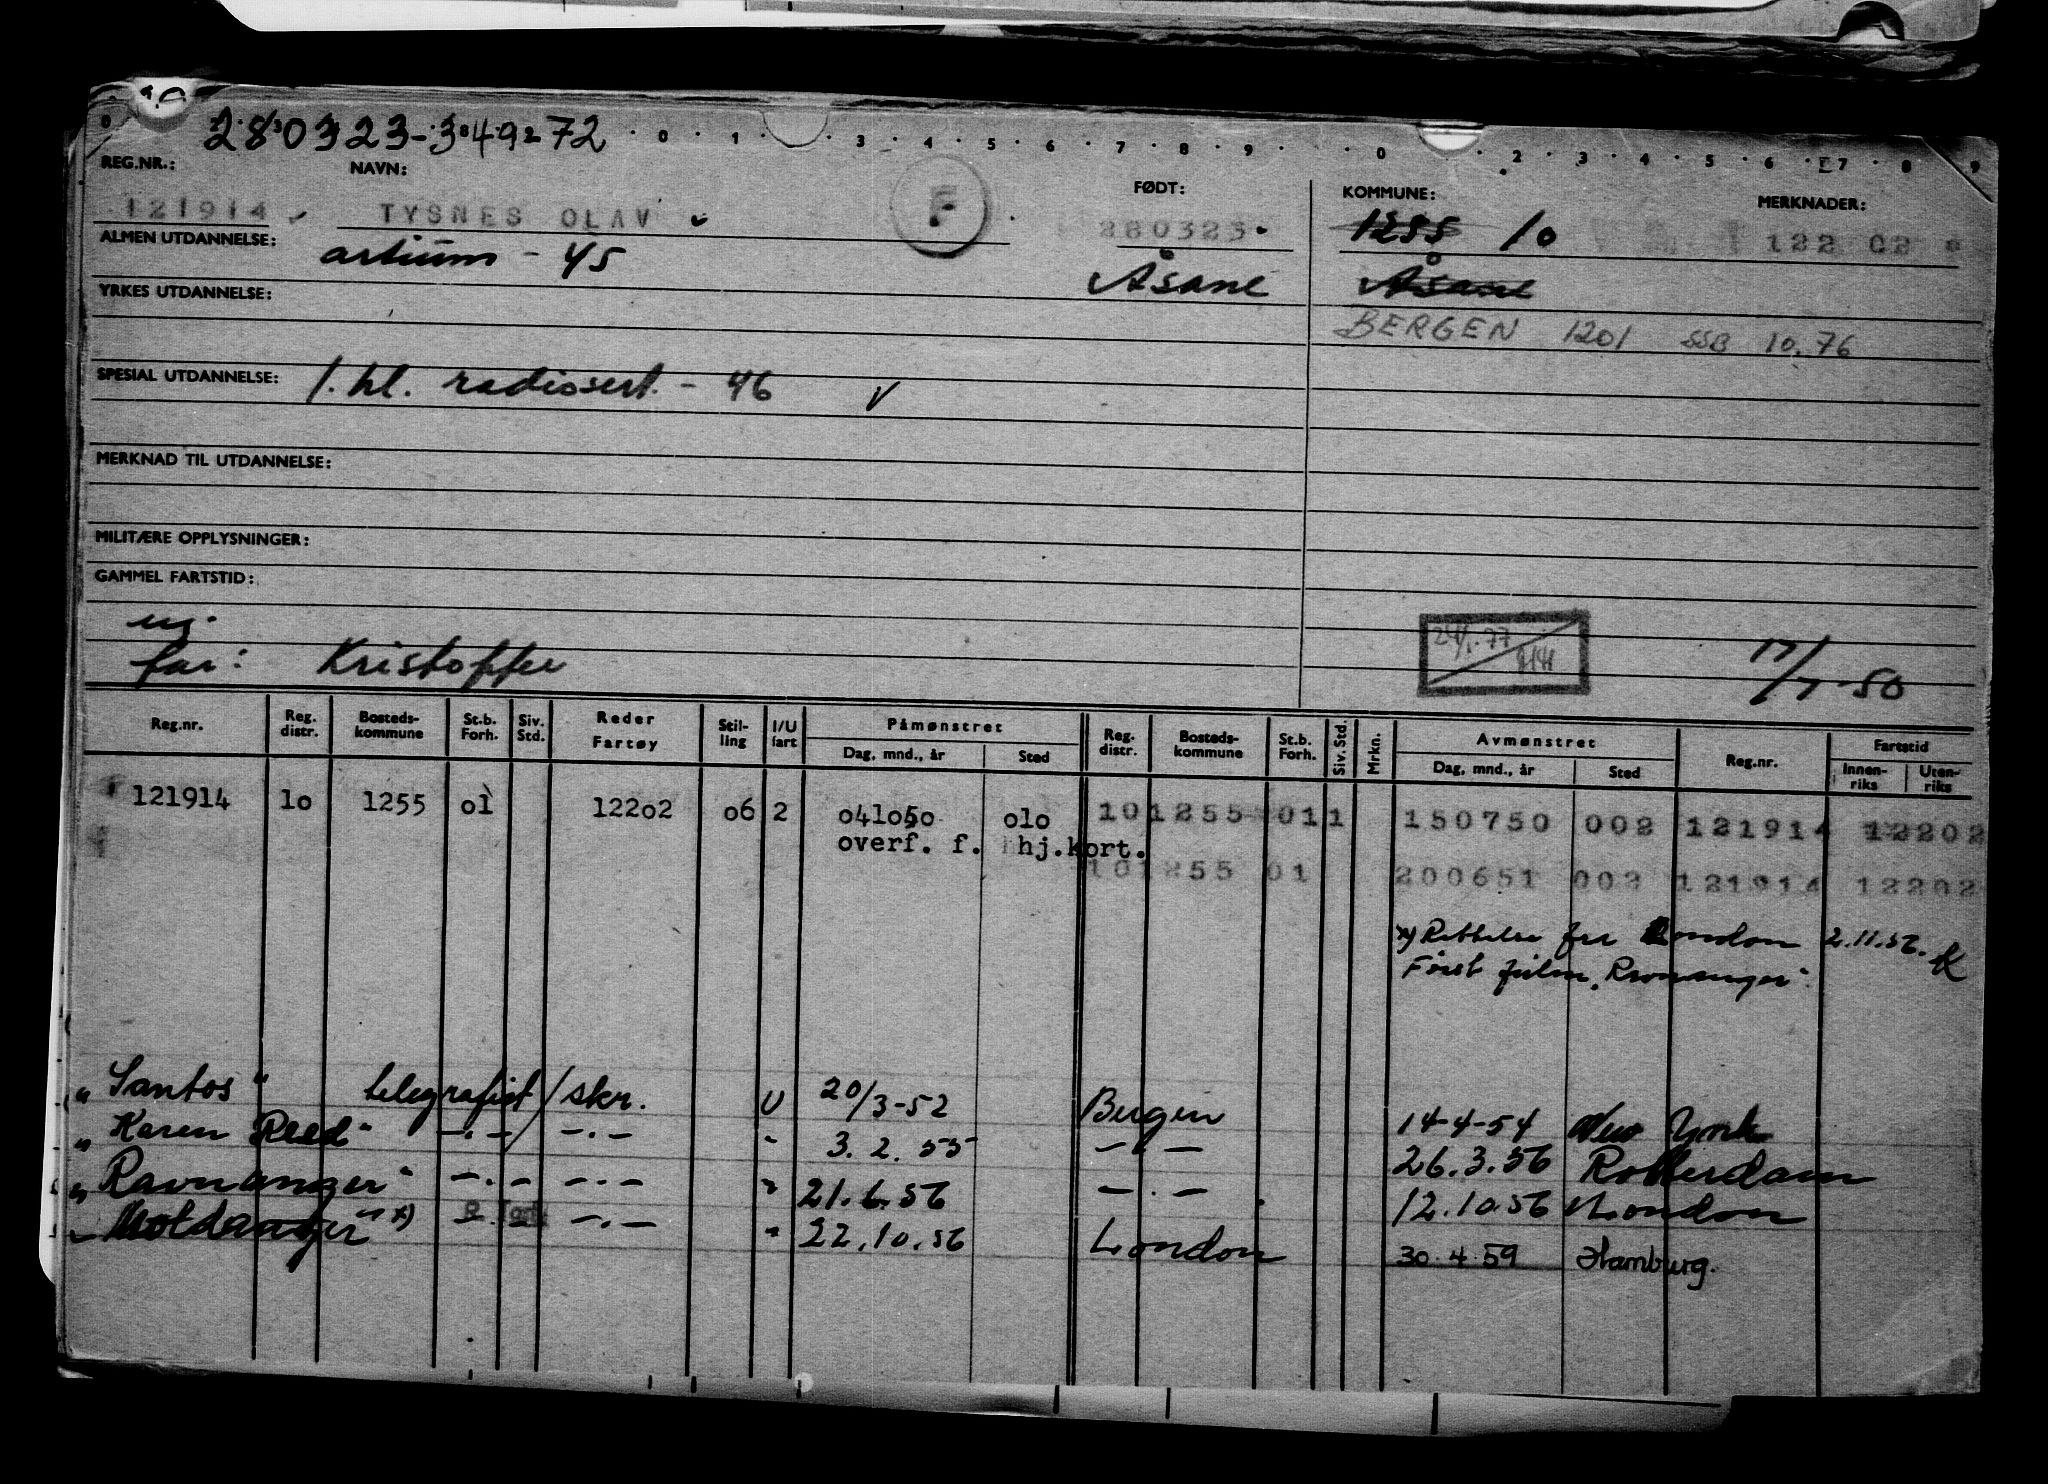 280323-34972
REG.NR.: NAVN: FØDT: KOMMUNE: MERKNADER:
121914 TYSNES OLAV F 280323 1255 10 122 02
ALMEN UTDANNELSE: artium - 45 Åsane Åsane
YRKES UTDANNELSE:
BERGEN 1201 SSB 10.76
SPESIAL UTDANNELSE: 1. kl. radiosert. - 46 v
MERKNAD TIL UTDANNELSE:
MILITÆRE OPPLYSNINGER:
GAMMEL FARTSTID:
ug.
far: Kristoffer 24/1.77 17/7-50
Reg.nr. Reg. distr. Bosteds-kommune St.b. Forh. Siv. Std. Reder Fartøy Stil-ling I/U fart Påmønstret Reg. distr. Bosteds-kommune St.b. Forh. Siv. Std. Mrkn. Avmønstret Reg.nr. Fartstid
Dag, mnd., år Sted Dag, mnd., år Sted Innen-riks Uten-riks
121914 lo 1255 ol 12202 o6 2 o41o5o olo 10 1255 01 1 150750 002 121914 12202
overf. f. hj.kort.
10 1255 01 200651 002 121914 12202
x) Rettelse fra London 2.11.56. K
Først feilm. "Ravnanger".
"Santos" telegrafist/skr. U 20/3-52 Bergen 14-4-54 New York
"Karen Reed" -.- / -.- " 3. 2. 55 - . - 26.3.56 Rotterdam
"Ravnanger" -.- -.- " 21.6.56 - . - 12.10.56 London
"Moldanger" x) -.- " 22.10.56 London 30.4.59 Hamburg.